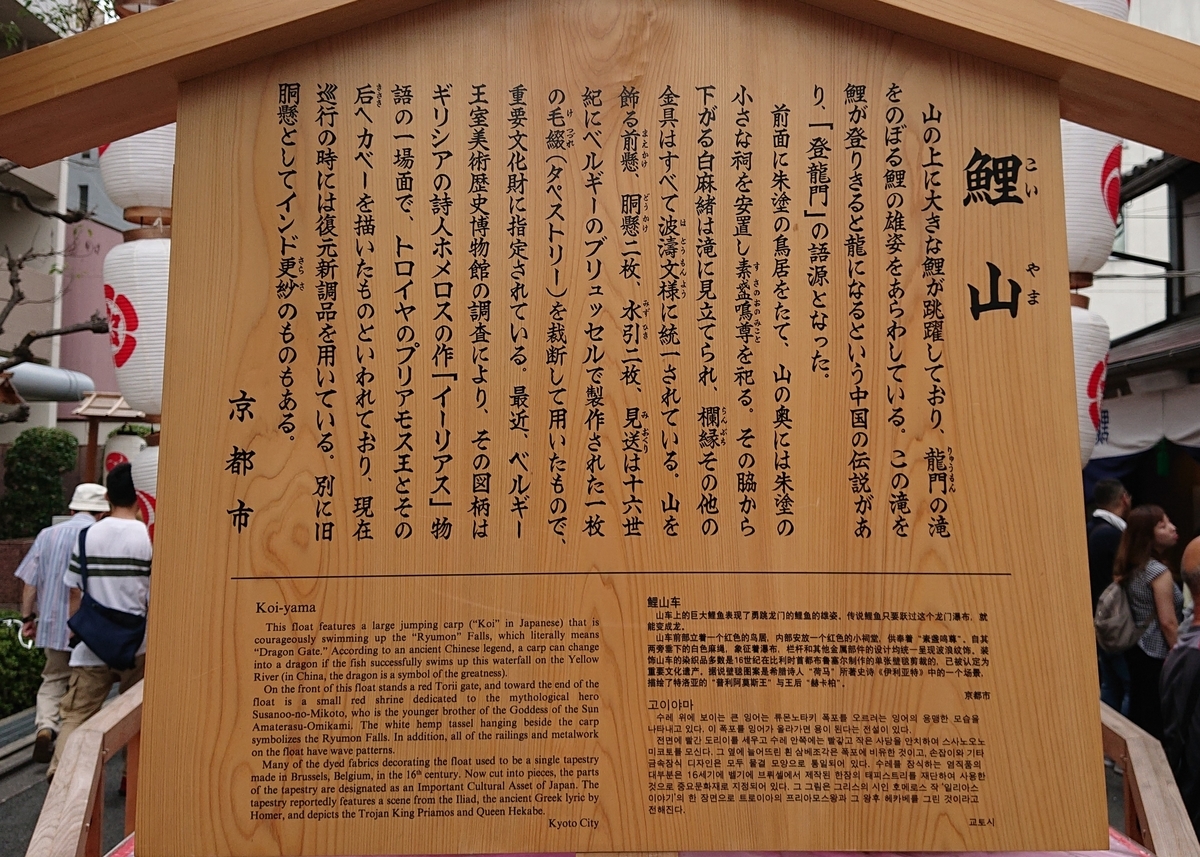 鯉山
こいやま
山の上に大きな鯉が跳躍しており、龍門の滝
をのぼる鯉の雄姿をあらわしている。この滝を
鯉が登りきると龍になるという中国の伝説があ
り、「登龍門」の語源となった。
前面に朱塗の鳥居をたて、山の奥には朱塗の
小さな祠を安置し素盞鳴尊を祀る。その脇から
下がる白麻緒は滝に見立てられ、欄縁その他の
金具はすべて波濤文様に統一されている。山を
飾る前懸、胴懸二枚、水引二枚、見送は十六世
紀にベルギーのブリュッセルで製作された一枚
の毛綴(タペストリー)を裁断して用いたもので、
重要文化財に指定されている。最近、ベルギー
王室美術歴史博物館の調査により、その図柄は
ギリシアの詩人ホメロスの作「イーリアス」物
語の一場面で、トロイヤのプリアモス王とその
后ヘカベーを描いたものといわれており、現在
巡行の時には復元新調品を用いている。別に旧
胴懸としてインド更紗のものもある。
京都市
Koi-yama
This float features a large jumping carp ("Koi" in Japanese) that is
courageously swimming up the "Ryumon" Falls, which literally means
"Dragon Gate." According to an ancient Chinese legend, a carp can change
into a dragon if the fish successfully swims up this waterfall on the Yellow
River (in China, the dragon is a symbol of the greatness).
On the front of this float stands a red Torii gate, and toward the end of the
float is a small red shrine dedicated to the mythological hero
Susanoo-no-Mikoto, who is the younger brother of the Goddess of the Sun
Amaterasu-Omikami. The white hemp tassel hanging beside the carp
symbolizes the Ryumon Falls. In addition, all of the railings and metalwork
on the float have wave patterns.
Many of the dyed fabrics decorating the float used to be a single tapestry
made in Brussels, Belgium, in the 16th century. Now cut into pieces, the parts
of the tapestry are designated as an Important Cultural Asset of Japan. The
tapestry reportedly features a scene from the Iliad, the ancient Greek lyric by
Homer, and depicts the Trojan King Priamos and Queen Hekabe.
Kyoto City
鲤山车
山车上的巨大鲤鱼表现了勇跳龙门的鲤鱼的雄姿。传说鲤鱼只要跃过这个龙门瀑布，就
能变成龙。
山车前部立着一个红色的鸟居，内部安放一个红色的小祠堂，供奉着“素盏鸣尊”。自其
两旁垂下的白色麻绳，象征着瀑布，栏杆和其他金属部件的设计均统一呈现波浪纹饰。装
饰山车的染织品多数是16世纪在比利时首都布鲁塞尔制作的单张壁毯剪裁的，已被认定为
重要文化遗产。据说壁毯图案是希腊诗人“荷马”所著史诗《伊利亚特》中的一个场景，
描绘了特洛亚的“普利阿莫斯王”与王后“赫卡柏”。
京都市
고이야마
수레 위에 보이는 큰 잉어는 류몬노타키 폭포를 오르려는 잉어의 용맹한 모습을
나타내고 있다. 이 폭포를 잉어가 올라가면 용이 된다는 전설이 있다.
전면에 빨간 도리이를 세우고 수레 안쪽에는 빨갛고 작은 사당을 안치하여 스사노오노
미코토를 모신다. 그 옆에 늘어뜨린 흰 삼베조각은 폭포에 비유한 것이고, 손잡이와 기타
금속장식 디자인은 모두 물결 모양으로 통일되어 있다. 수레를 장식하는 염직품의
대부분은 16세기에 벨기에 브뤼셀에서 제작된 한장의 태피스트리를 재단하여 사용한
것으로 중요문화재로 지정되어 있다. 그 그림은 그리스의 시인 호메로스 작 '일리아스
이야기'의 한 장면으로 트로이아의 프리아모스왕과 그 왕후 헤카베를 그린 것이라고
전해진다.
교토시